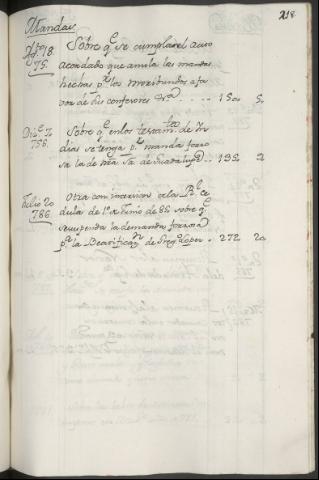 218
Mandas
Ag.to 18 Sobre q.e se cumpla el auto
75. acordado que anula las mandas
hechas p.r los moribundos a fa
vor de sus confesores &.a - - - - 150 5.
Dic.e 7 Sobre q.e en los testam.tos de In
756. dias se tenga p.r manda forzo
sa la de Nra S.a de Guadalupe - 192 2
Julio 20 Otra con insercion de la R.l ce
786. dula de 1.o de Junio de 85 sobre q.e
se suspenda la demanda forzosa
p.a la Beatificac.n de Greg.o Lopez - 272 20